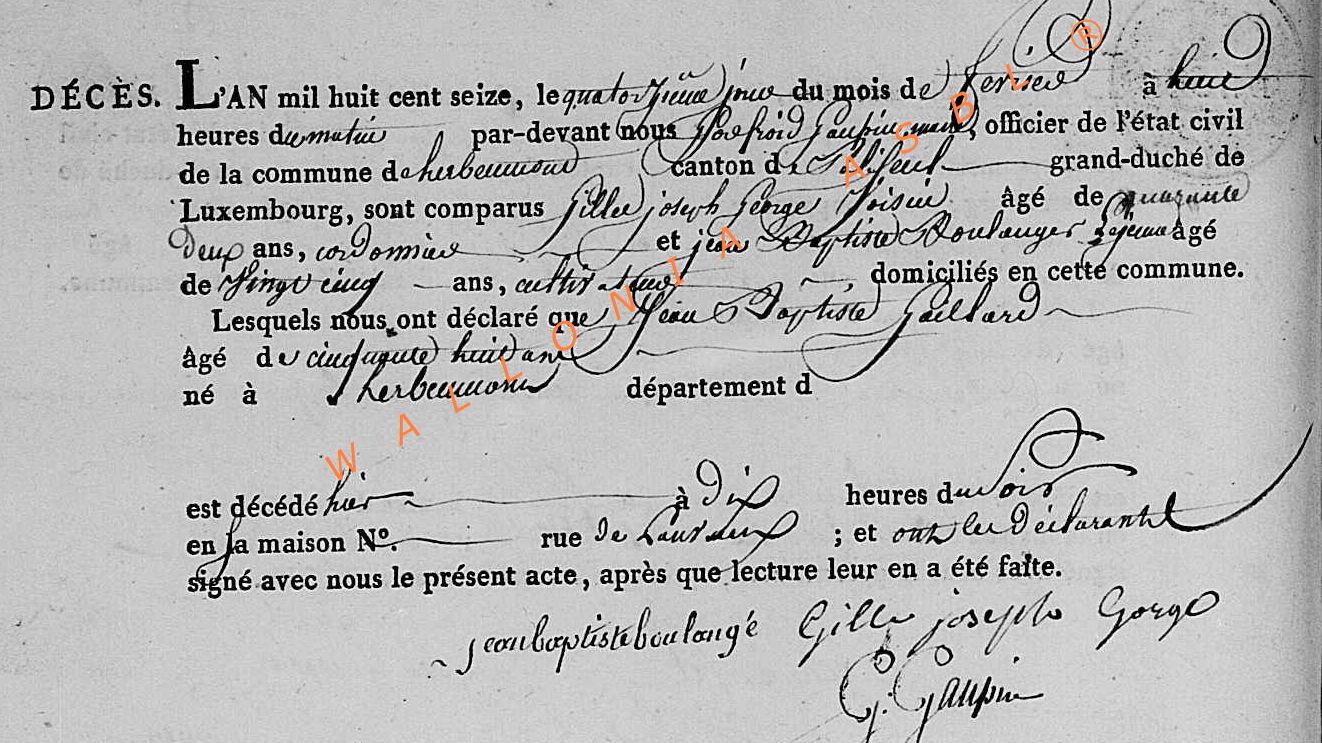 DÉCÈS. L'AN mil huit cent seize, le quatorzieme jour du mois de fevrier à huit
heures du matin par-devant nous Godfroid Gaupin maire, officier de l'état civil
de la commune de herbeumont canton de Paliseul grand-duché de
Luxembourg, sont comparus Gille joseph George Voisin âgé de quarante
deux ans, cordonnier et jean Baptiste Boulanger âgé
de Vingt cinq ans, cultivateur domiciliés en cette commune.
Lesquels nous ont déclaré que Jean Baptiste Gaillard
âgé de cinquante huit ans
né à herbeumont département d
est décédé hier à Dix heures du Soir
en sa maison N°. rue de ; et ont les déclarants
signé avec nous le présent acte, après que lecture leur en a été faite.
jean baptiste boulangé Gille joseph Gorge
G. Gaupin
WALLONIA ASBL ®